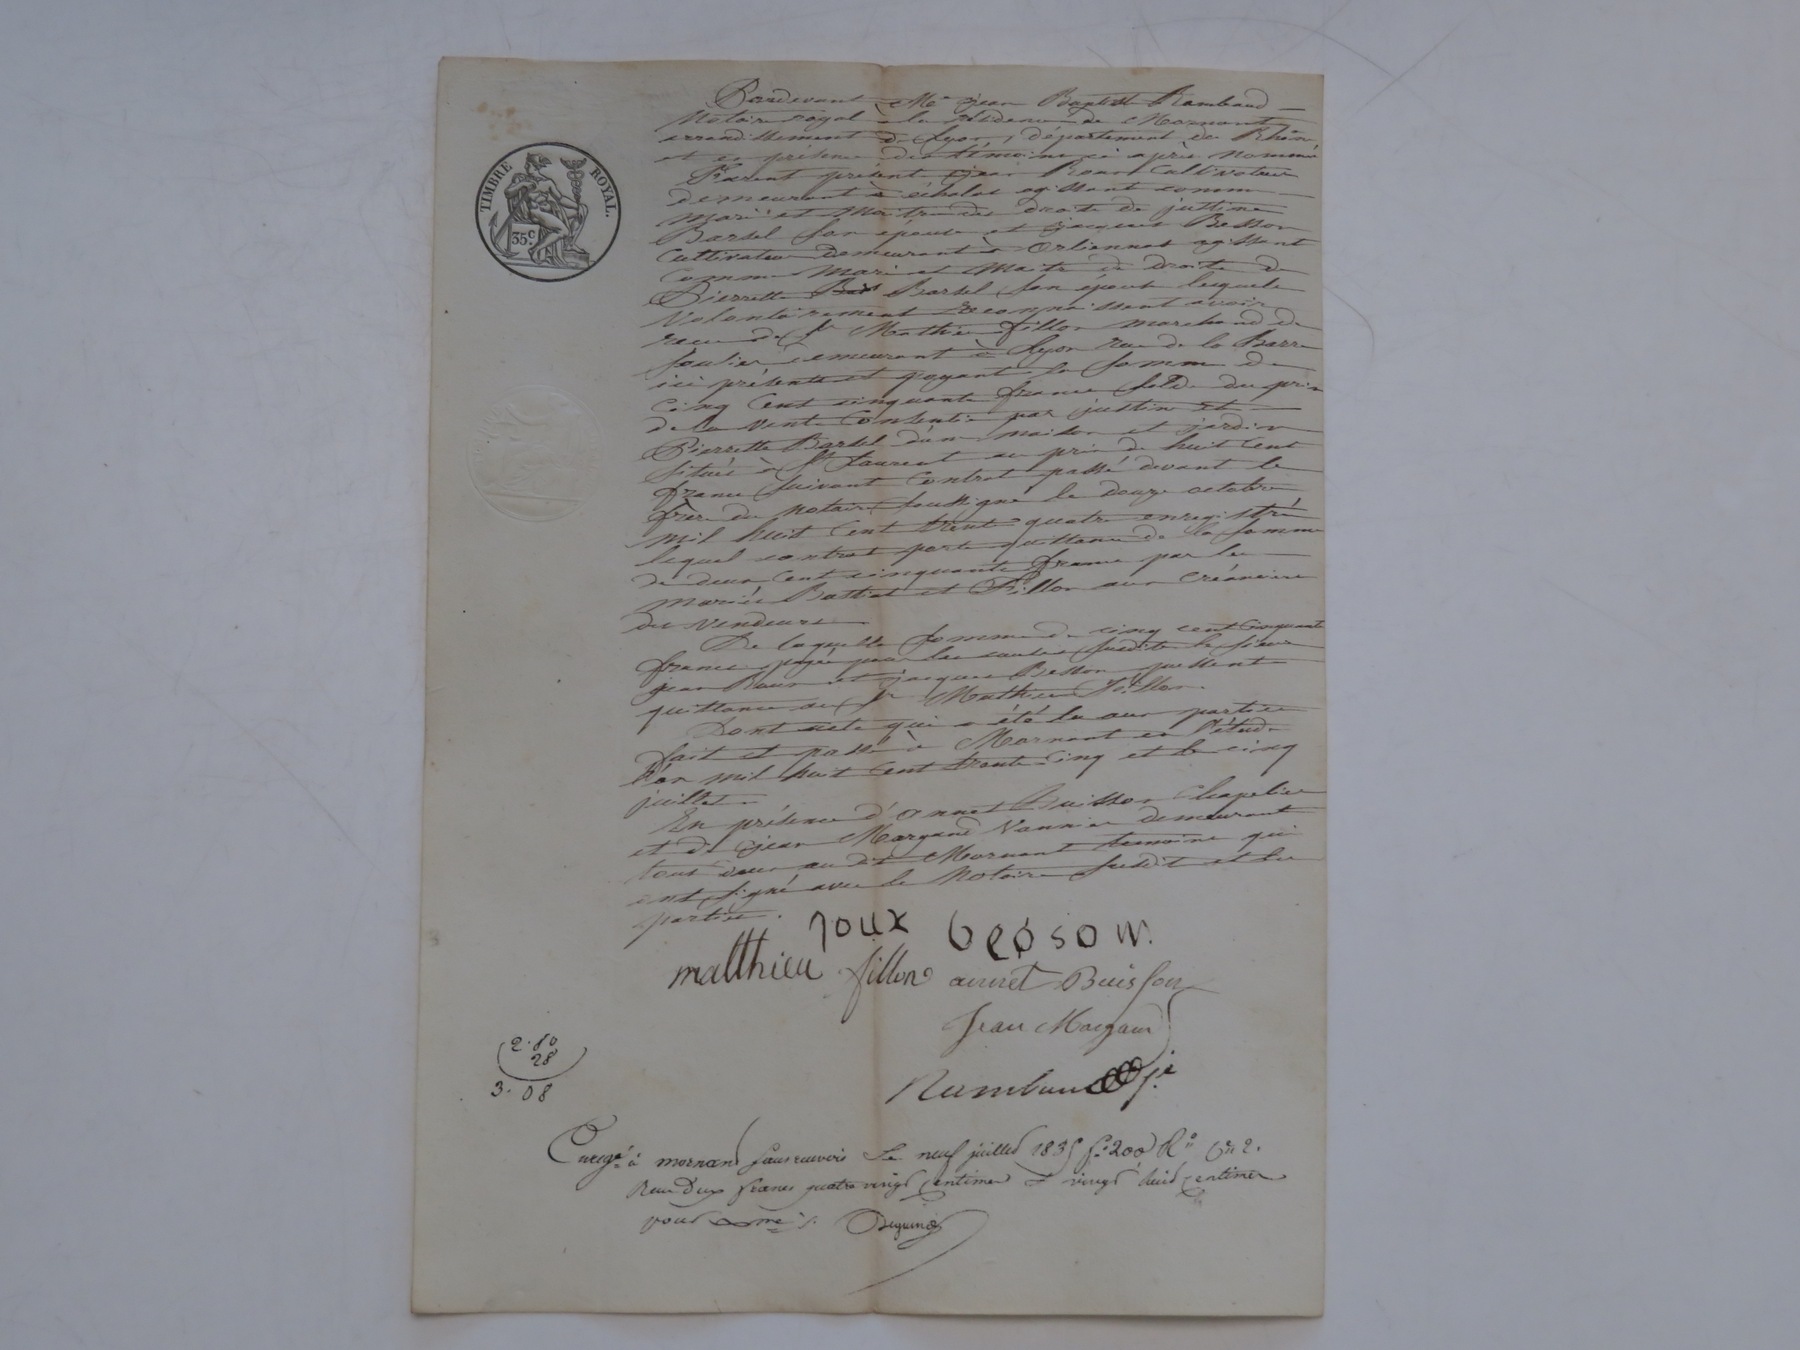 TIMBRE ROYAL.
35c.
Pardevant Me jean Baptist Rambaud
Notaire royal à la résidence de Mornant
arrondissement de Lyon, département du Rhône
et en présence des témoins ci après nommé
Furent présent jean Roux Cultivateur
demeurant à échalas agissant comme
Mari et Maitre des droits de justine
Barsel son épouse et jacques Besson
Cultivateur demeurant à Orliennas agissant
Comme Mari et Maitre de droits de
Pierrette Barsel son épouse lesquels
Volontairement reconnaissent avoir
recu de Sr Mathieu fillon marchand de
soulier demeurant à Lyon rue de la Barre
ici présente et payant la somme de
cinq cent cinquante francs solde du prix
de la vente Consentie par justine et
Pierrette Barsel d'une maison et jardin
situés à St Laurent au prix de huit cent
francs suivant Contrat passé devant le
frère du Notaire soussigné le douze octobre
mil huit cent trente quatre enregistré
lequel contrat porte quittance de la somme
de deux cent cinquante francs par les
mariés et Fillon aux Créanciers
des vendeurs
De laquelle somme de cinq cent cinquante
francs payée pour les causes susdite le sieur
jean Roux et jacques Besson passent
quittance au Sr Mathieu Fillon.
Dont acte qui a été lu aux parties
fait et passé à Mornant en l'étude
L'an mil huit cent trente cinq et le cinq
juillet
En présence d'annet Buisson Chapelier
et de jean Margand Vannier demeurant
tous deux au dit Mornant temoins qui
ont signé avec le Notaire susdit et les
parties.
roux besson.
matthieu fillon annet Buisson
Jean Margand
Rambaud
2.80
28
3.08
Enregé à mornant sans renvois Le neuf juillet 1835 fo 200 Ro Ce 2.
Reçu deux francs quatre vingt centimes et vingt huit centimes
pour